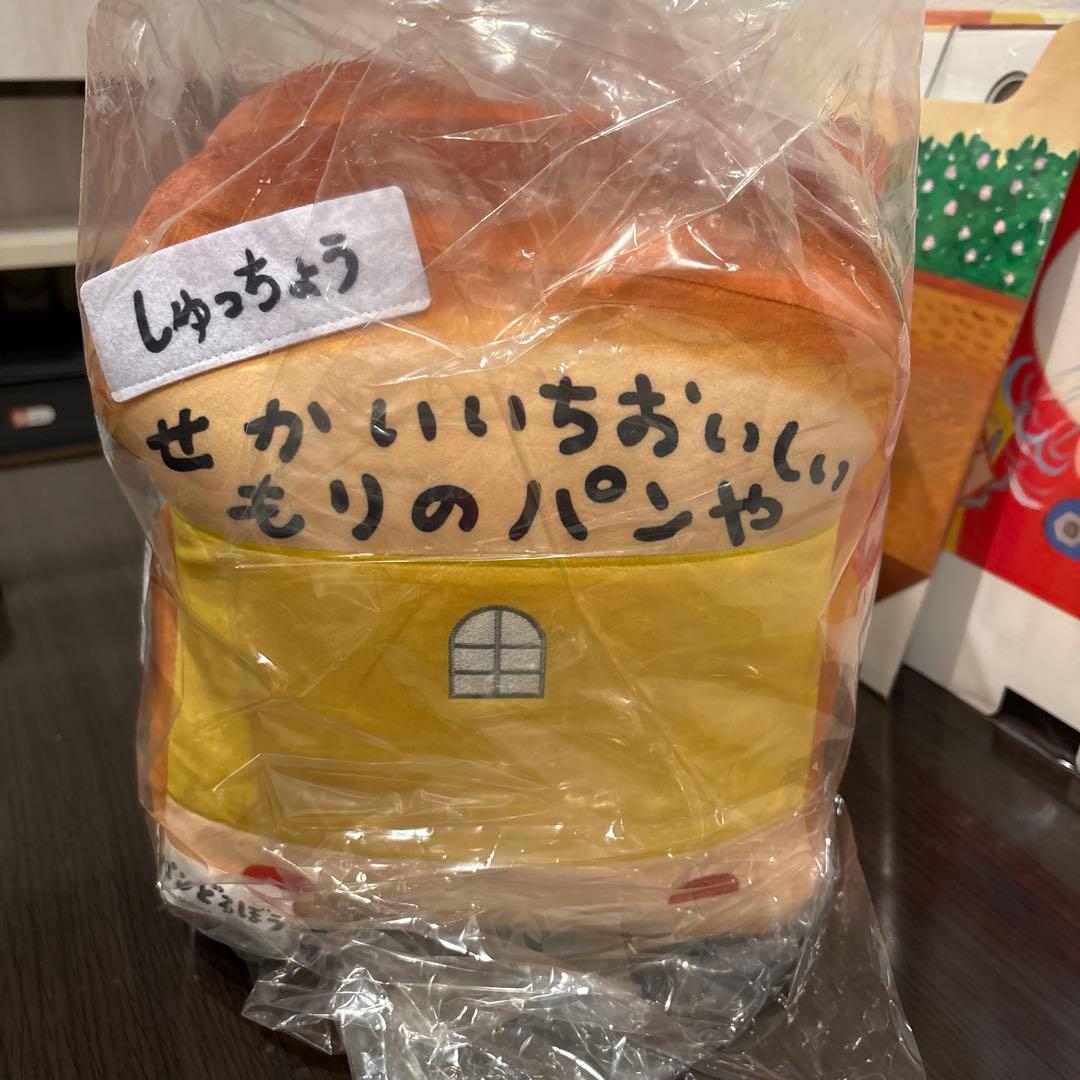 しゅっちょう
せかいいちおいしい
もりのパンや
パンどろぼう